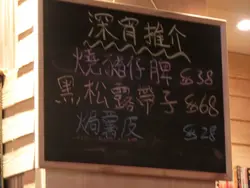 深宵推介
燒豬仔脾 $38
黑松露帶子 $68
焗薯皮 $28